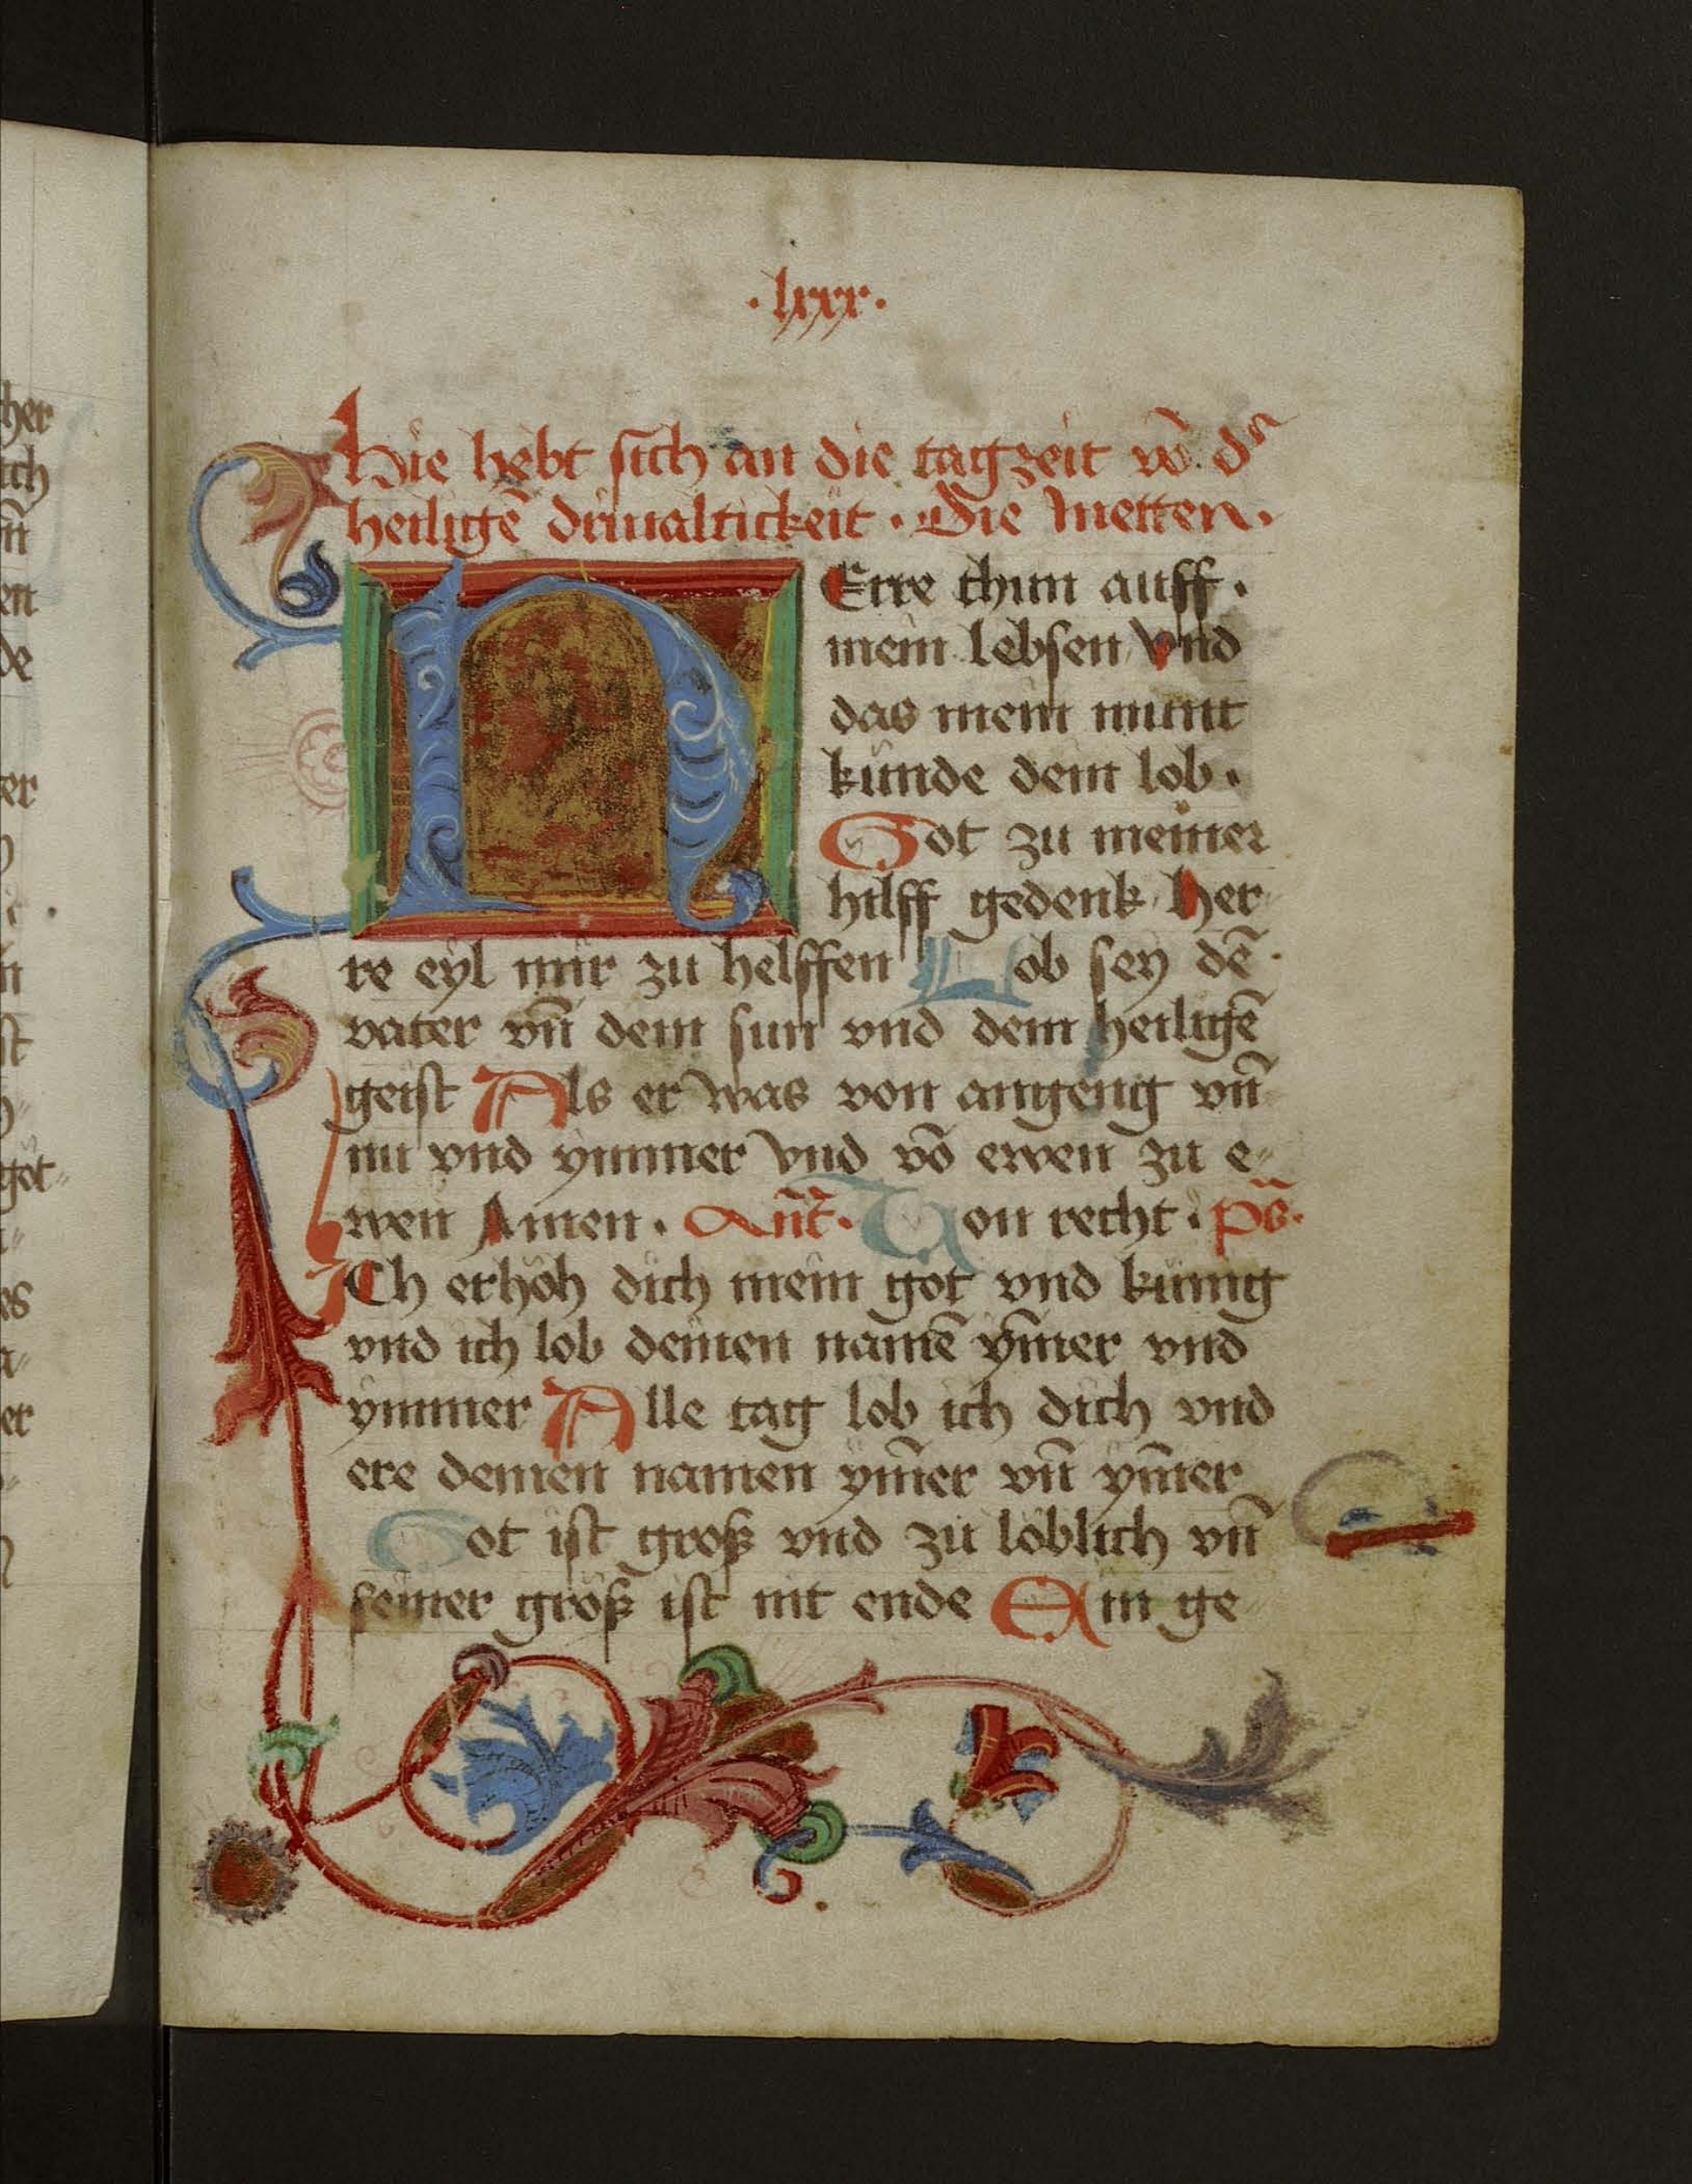 ·lxxx·
hie hebt sich an die tagzeit vō dˢ
heiligē driualtickeit · Die metten·
HErre thun auff·
mein lebsen vnd
das mein munt
kunde dein lob·
Got zu meiner
hilff gedenk her
re eyl mir zu helffen Lob sey dē
vater vn̄ dem sun vnd dem heiligē
geist Als er was von angeng vn̄
nu vnd ymmer vnd vō ewen zu e„
wen Amen· Ant̄· Von recht· ps̄·
ICh erhöh dich mein got vnd künig
vnd ich lob deinen namē ym̄er vnd
ymmer Alle tag lob ich dich vnd
ere deinen namen ym̄er vn̄ ym̄er
Got ist groß vnd zu löblich vn̄
seiner größ ist nit ende Ein ge„
her
ich
n̄
en
de
er
st
got„
es
er